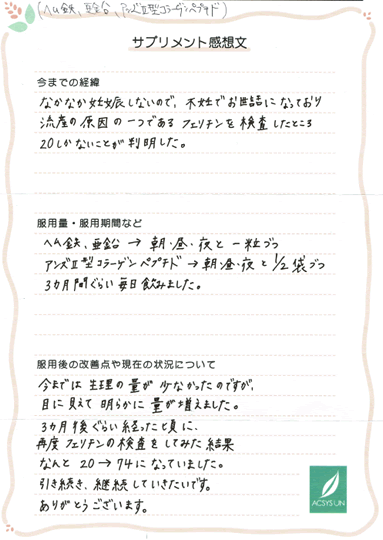 (ヘム鉄、亜鉛、アンズⅡ型コラーゲンペプチド)
サプリメント感想文
今までの経緯
なかなか妊娠しないので、不妊でお世話になっており
流産の原因の一つである フェリチンを検査したところ
20しかないことが判明した。
服用量・服用期間など
ヘム鉄、亜鉛 → 朝・昼・夜と 一粒づつ
アンズⅡ型コラーゲン ペプチド → 朝・昼・夜と 1/2袋づつ
3カ月間ぐらい毎日飲みました。
服用後の改善点や現在の状況について
今までは 生理の量が 少なかったのですが、
目に見えて 明らかに 量が増えました。
3カ月後ぐらい経った頃に、
再度フェリチンの検査をしてみた結果
なんと 20 → 74になっていました。
引き続き、継続していきたいです。
ありがとうございます。
ACSYSUN